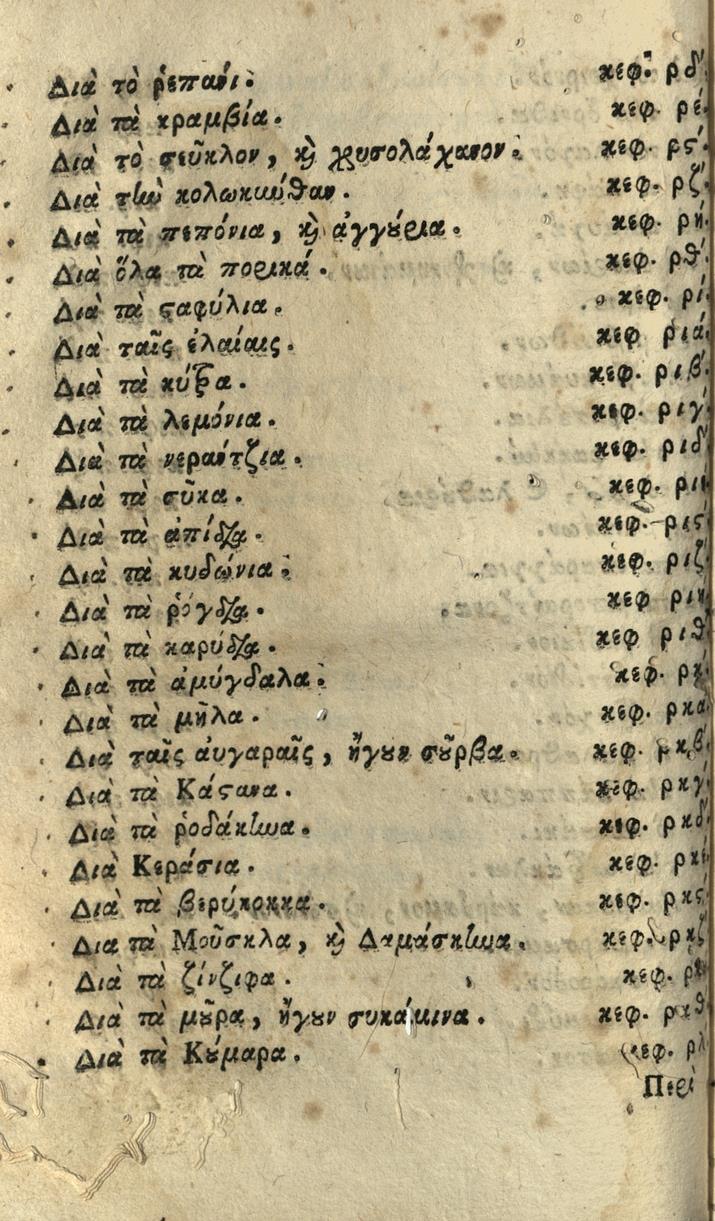 Διὰ τὸ ῥεπάνι. κεφ. ρδ.
Διὰ τὰ κραμβία. κεφ. ρέ.
Διὰ τὸ σεῦκλον, ϗ χρυσολάχανον. κεφ. ρϛ.
Διὰ τὴν κολωκυύθαν. κεφ. ρζ.
Διὰ τὰ πεπόνια, ϗ ἀγγούρια. κεφ. ρή.
Διὰ ὅλα τὰ πορικά. κεφ. ρθ.
Διὰ τὰ ϛαφύλια. κεφ. ρί.
Διὰ ταῖς ἐλαίαις. κεφ ριά.
Διὰ τὰ κύτρα. κεφ. ριβ.
Διὰ τὰ λεμόνια. κεφ. ριγ.
Διὰ τὰ νεράντζια. κεφ. ριδ.
Διὰ τὰ σῦκα. κεφ. ριέ
Διὰ τὰ ἀπίδια. κεφ. ριϛ.
Διὰ τὰ κυδώνια. κεφ. ριζ.
Διὰ τὰ ῥόγδια. κεφ ριη
Διὰ τὰ καρύδια. κεφ ριθ
Διὰ τὰ ἀμύγδαλα. κεφ. ρκ.
Διὰ τὰ μῆλα. κεφ. ρκα
Διὰ ταῖς ἀυγαραῖς, ἤγουν σοῦρβα. κεφ. ρκβ.
Διὰ τὰ Κάϛανα. κεφ. ρκγ.
Διὰ τὰ ῥοδάκινα. κεφ. ρκδ
Διὰ Κεράσια. κεφ. ρκέ
Διὰ τὰ βερύκοκκα. κεφ. ρκϛ.
Δια τὰ Μοῦσκλα, ϗ Δαμάσκινα. κεφ. ρκζ
Διὰ τὰ ζίνζιφα. κεφ. ρκη
Διὰ τὰ μοῦρα, ἤγουν συκάμινα. κεφ. ρκθ
Διὰ τὰ Κούμαρα. κεφ. ρλ
Περὶ